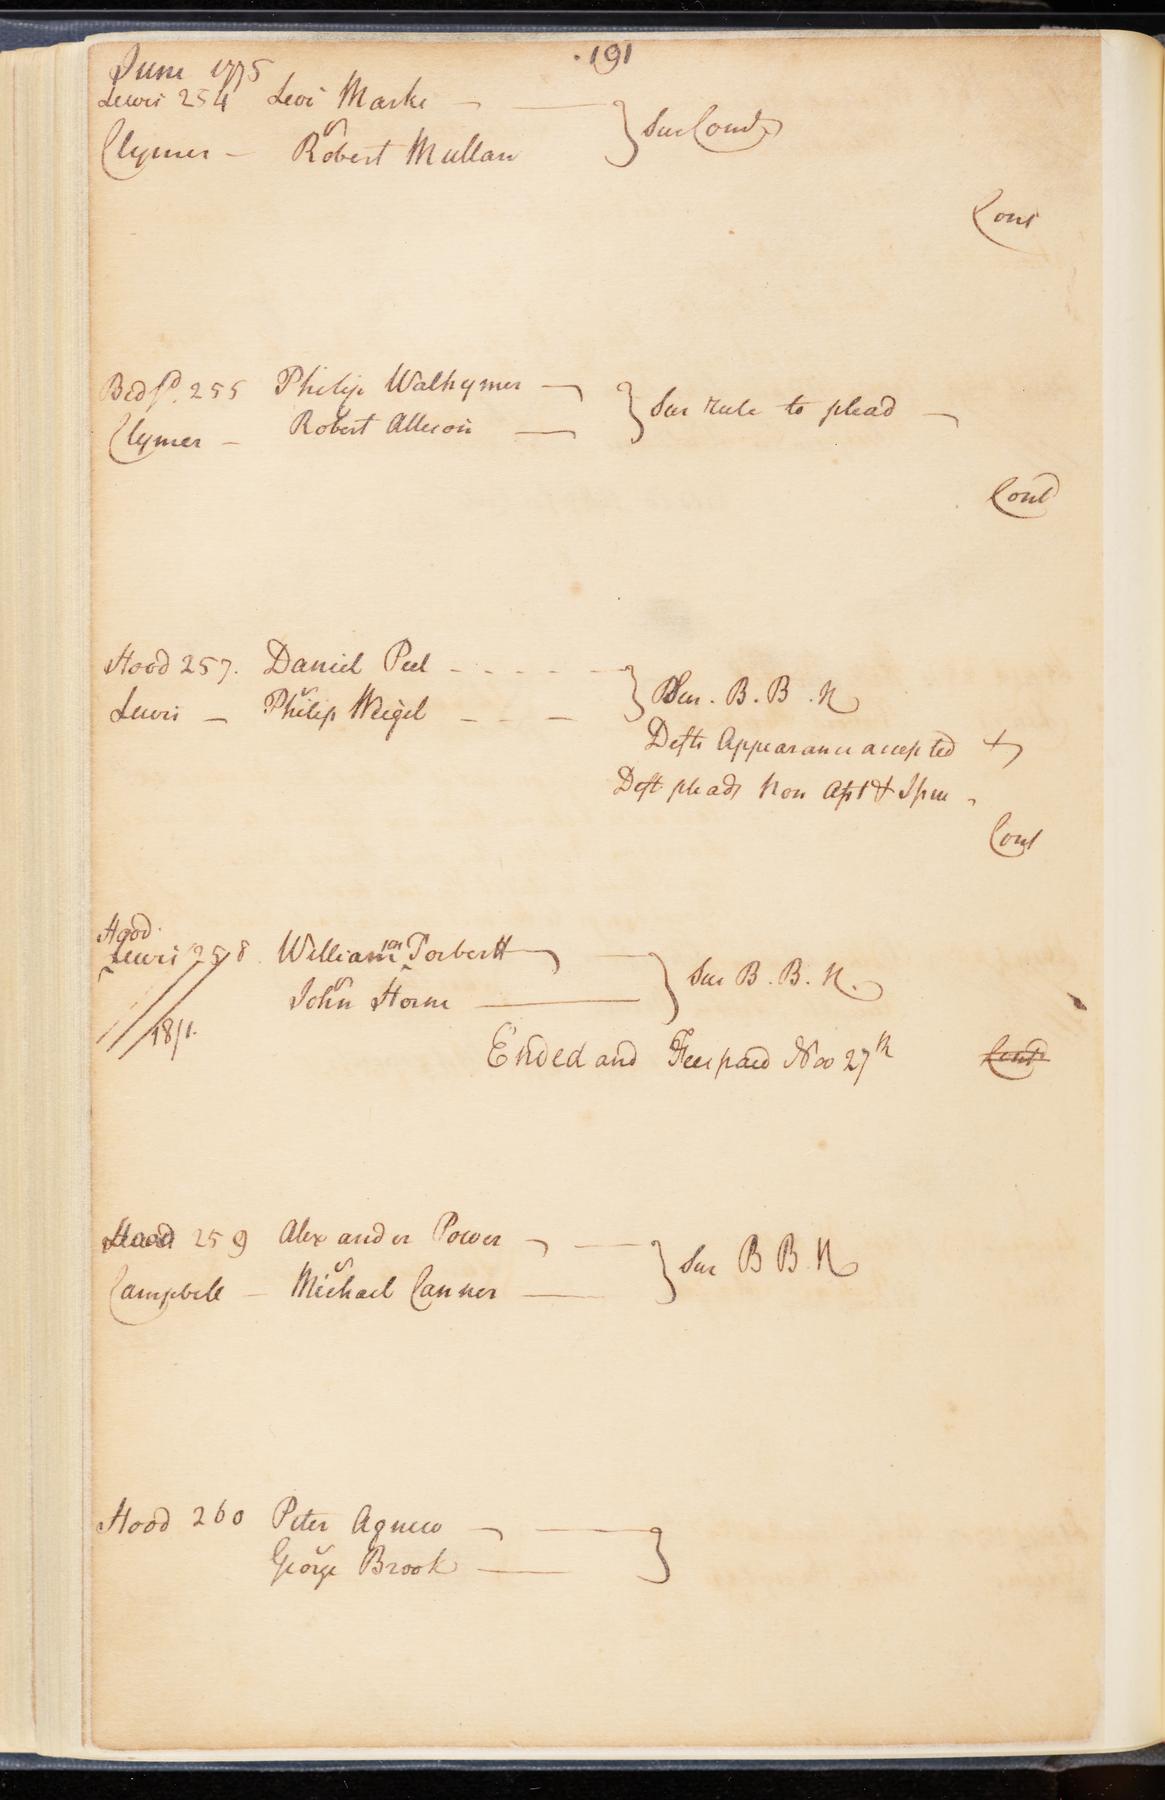 191
June 1775
Lewis 254 Levi Marks
v
Clymer Robert Mullan
Sur Cond
Cont
Bedfd. 255 Philip Walhymer
v
Clymer Robert Allison
Sur rule to plead
Contd
Hood 257. Daniel Peel
v
Lewis Philip Weigel
Sur. B. B. N
Defts Appearance accepted
Deft pleads Non Apt & Ipm
Cont
Hood
Lewis 258. William Torbertt
v
John Horne
18/1.
Sur B. B. N.
Ended and Fees paid Nov 27th
Contd
Hood 259 Alexander Power
v
Campbell Michael Canner
Sur B B N
Hood 260 Peter Agnew
v
George Brook